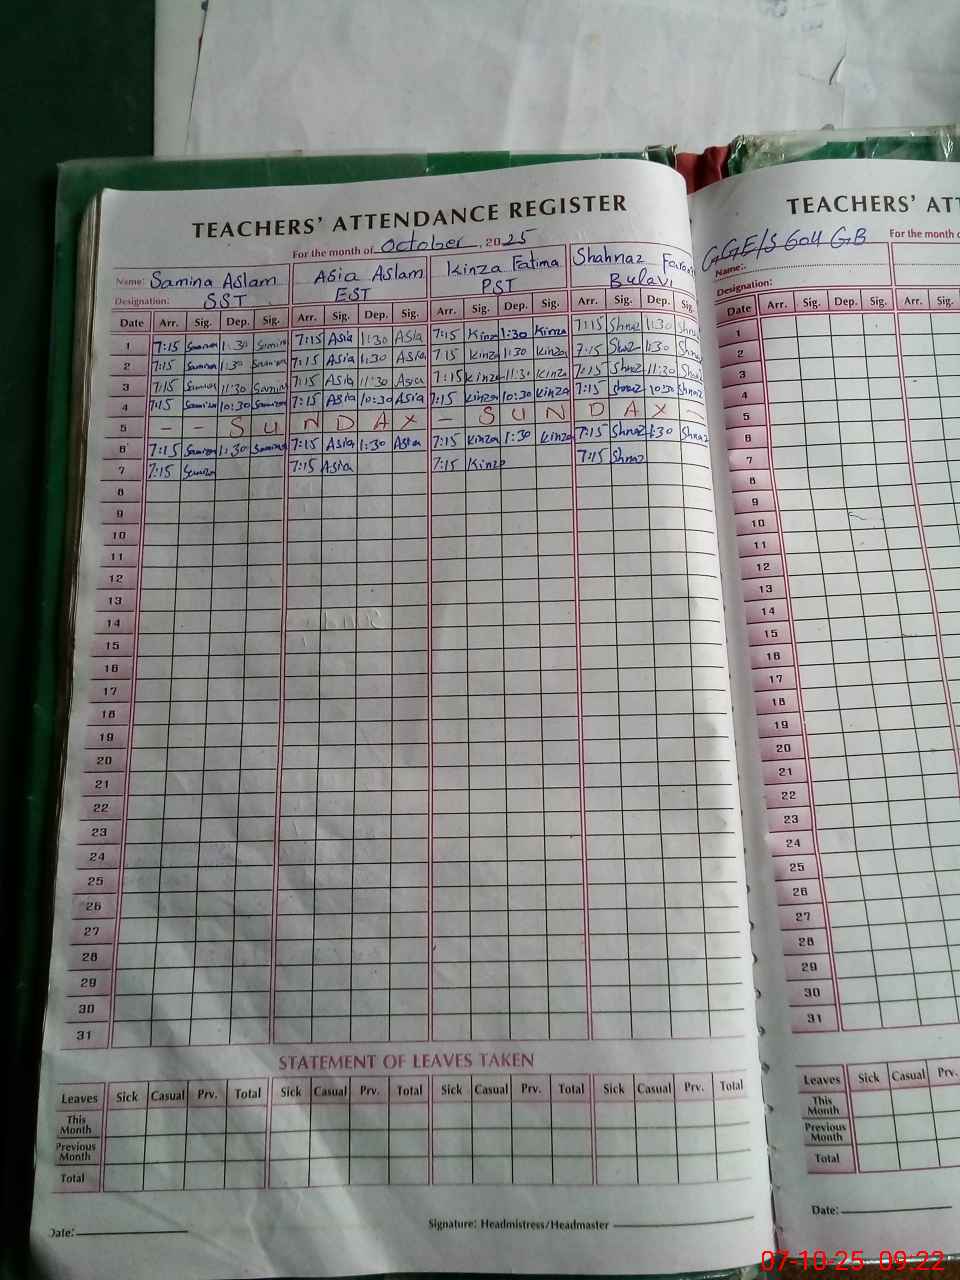 TEACHERS' ATTENDANCE REGISTER
For the month of October, 2025
Name: Samina Aslam Asia Aslam Kinza Fatima Shahnaz
Designation: SST EST PST
Date Arr. Sig. Dep. Sig. Arr. Sig. Dep. Sig. Arr. Sig. Dep. Sig. Arr. Sig. Dep. Sig.
1 7:15 Samina 1:30 Samina 7:15 Asia 1:30 Asia 7:15 Kinza 1:30 Kinza 7:15 Shnaz 1:30 Shnaz
2 7:15 Samina 1:30 Samina 7:15 Asia 1:30 Asia 7:15 Kinza 1:30 Kinza 7:15 Shnaz 1:30 Shnaz
3 7:15 Samina 11:30 Samina 7:15 Asia 11:30 Asia 7:15 Kinza 11:30 Kinza 7:15 Shnaz 11:30 Shnaz
4 7:15 Samina 10:30 Samina 7:15 Asia 10:30 Asia 7:15 Kinza 10:30 Kinza 7:15 Shnaz 10:30 Shnaz
5 - - S U N D A Y - S U N D A Y -
6 7:15 Samina 1:30 Samina 7:15 Asia 1:30 Asia 7:15 Kinza 1:30 Kinza 7:15 Shnaz 1:30 Shnaz
7 7:15 Samina 7:15 Asia 7:15 Kinza 7:15 Shnaz
8
9
10
11
12
13
14
15
16
17
18
19
20
21
22
23
24
25
26
27
28
29
30
31
STATEMENT OF LEAVES TAKEN
Leaves Sick Casual Prv. Total Sick Casual Prv. Total Sick Casual Prv. Total Sick Casual Prv. Total
This
Month
Previous
Month
Total
Date: Signature: Headmistress/Headmaster
TEACHERS' ATT
For the month
GGE/S 6011 GB
Name:
Designation:
Date Arr. Sig. Dep. Sig. Arr. Sig.
1
2
3
4
5
6
7
8
9
10
11
12
13
14
15
16
17
18
19
20
21
22
23
24
25
26
27
28
29
30
31
Leaves Sick Casual Prv.
This
Month
Previous
Month
Total
Date:
07-10-25 09:22